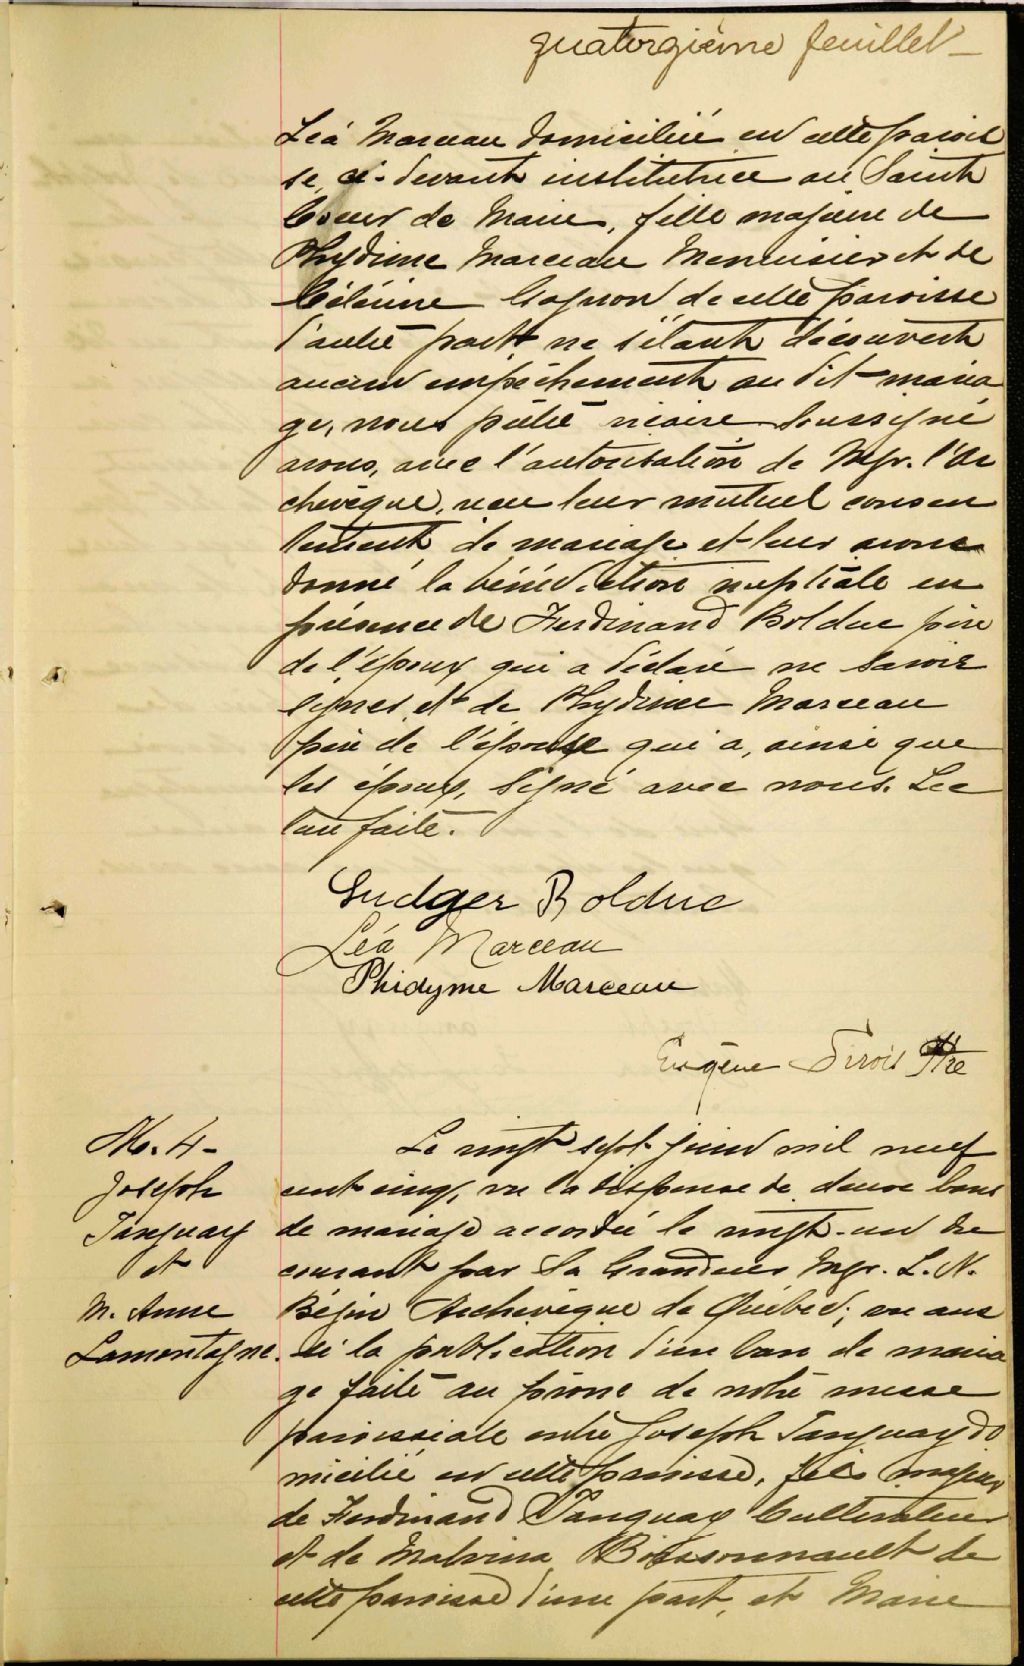 quatorzième feuillet
Léa Marceau domiciliée en cette parois
se, ci-devant institutrice au Saint
Coeur de Marie, fille majeure de
Phydime Marceau Menuisier et de
Célérine Gagnon de cette paroisse
d'autre part ne s'étant découvert
aucun empêchement au dit maria
ge, nous prêtre vicaire soussigné
avons, avec l'autorisation de Mgr. l'Ar
chevêque, reçu leur mutuel consen
tement de mariage et leur avons
donné la bénédiction nuptiale en
présence de Ferdinand Bolduc père
de l'époux qui a déclaré ne savoir
signer et de Phydime Marceau
père de l'épouse qui a, ainsi que
les époux, signé avec nous. Lec
ture faite.
Gudger Bolduc
Léa Marceau
Phidyme Marceau
Eugène Sirois Ptre
M. 4-
Joseph
Tanguay
et
M. Anne
Lamontagne.
Le vingt sept juin mil neuf
cent cinq, vu la dispense de deux bans
de mariage accordée le vingt-un du
courant par Sa Grandeur Mgr. L. N.
Bégin Archevêque de Québec; vu aus
si la publication d'un ban de maria
ge faite au prône de notre messe
paroissiale entre Joseph Tanguay do
micilié en cette paroisse, fils majeur
de Ferdinand Tanguay Cultivateur
et de Malvina Boissonnault de
cette paroisse d'une part, et Marie